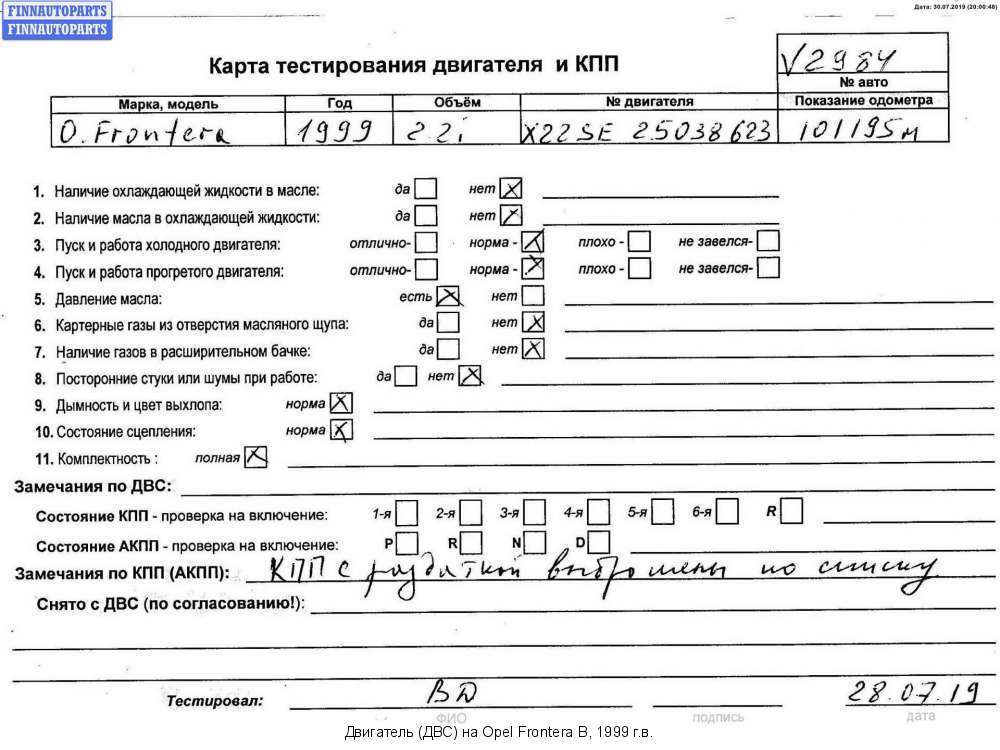 FINNAUTOPARTS
FINNAUTOPARTS
Дата: 30.07.2019 (20:00:48)
Карта тестирования двигателя и КПП
V2984
№ авто
Марка, модель Год Объём № двигателя Показание одометра
O. Frontera 1999 2.2i X22SE 25038623 101195м
1. Наличие охлаждающей жидкости в масле: да нет
2. Наличие масла в охлаждающей жидкости: да нет
3. Пуск и работа холодного двигателя: отлично- норма - плохо - не завелся-
4. Пуск и работа прогретого двигателя: отлично- норма - плохо - не завелся-
5. Давление масла: есть нет
6. Картерные газы из отверстия масляного щупа: да нет
7. Наличие газов в расширительном бачке: да нет
8. Посторонние стуки или шумы при работе: да нет
9. Дымность и цвет выхлопа: норма
10. Состояние сцепления: норма
11. Комплектность : полная
Замечания по ДВС:
Состояние КПП - проверка на включение: 1-я 2-я 3-я 4-я 5-я 6-я R
Состояние АКПП - проверка на включение: P R N D
Замечания по КПП (АКПП): КПП с раздаткой выброшены по списку
Снято с ДВС (по согласованию!):
Тестировал: ВД 28.07.19
ФИО подпись дата
Двигатель (ДВС) на Opel Frontera B, 1999 г.в.